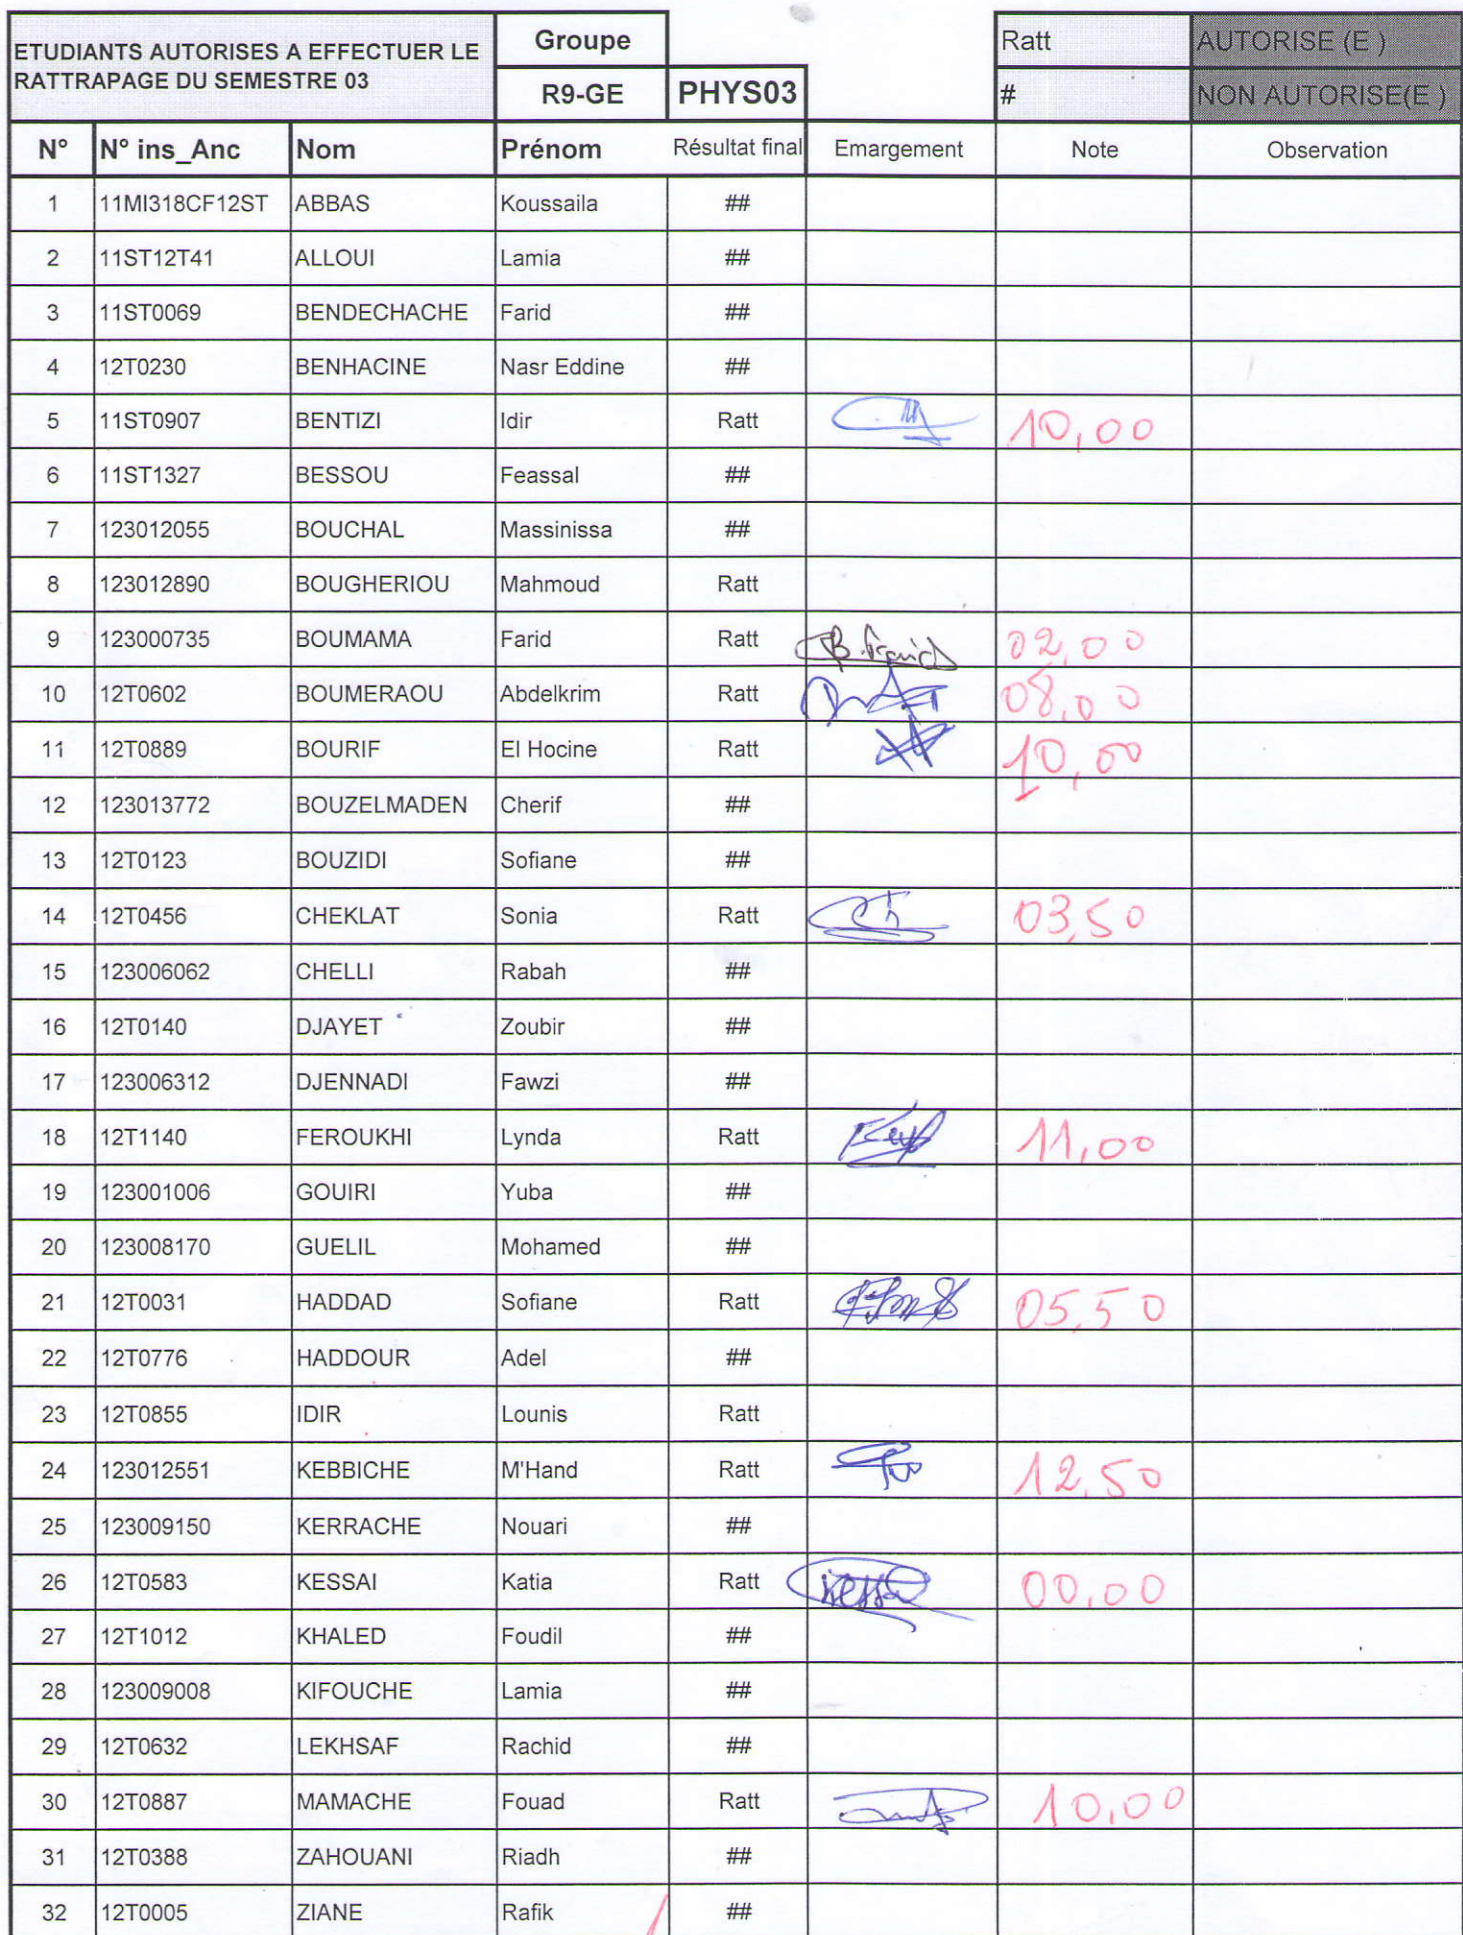 ETUDIANTS AUTORISES A EFFECTUER LE RATTRAPAGE DU SEMESTRE 03
Groupe
R9-GE PHYS03
Ratt AUTORISE (E )
# NON AUTORISE(E )
N° N° ins_Anc Nom Prénom Résultat final Emargement Note Observation
1 11MI318CF12ST ABBAS Koussaila ##
2 11ST12T41 ALLOUI Lamia ##
3 11ST0069 BENDECHACHE Farid ##
4 12T0230 BENHACINE Nasr Eddine ##
5 11ST0907 BENTIZI Idir Ratt 10,00
6 11ST1327 BESSOU Feassal ##
7 123012055 BOUCHAL Massinissa ##
8 123012890 BOUGHERIOU Mahmoud Ratt
9 123000735 BOUMAMA Farid Ratt B.Farid 02,00
10 12T0602 BOUMERAOU Abdelkrim Ratt 08,00
11 12T0889 BOURIF El Hocine Ratt 10,00
12 123013772 BOUZELMADEN Cherif ##
13 12T0123 BOUZIDI Sofiane ##
14 12T0456 CHEKLAT Sonia Ratt 03,50
15 123006062 CHELLI Rabah ##
16 12T0140 DJAYET Zoubir ##
17 123006312 DJENNADI Fawzi ##
18 12T1140 FEROUKHI Lynda Ratt 11,00
19 123001006 GOUIRI Yuba ##
20 123008170 GUELIL Mohamed ##
21 12T0031 HADDAD Sofiane Ratt 05,50
22 12T0776 HADDOUR Adel ##
23 12T0855 IDIR Lounis Ratt
24 123012551 KEBBICHE M'Hand Ratt 12,50
25 123009150 KERRACHE Nouari ##
26 12T0583 KESSAI Katia Ratt 00,00
27 12T1012 KHALED Foudil ##
28 123009008 KIFOUCHE Lamia ##
29 12T0632 LEKHSAF Rachid ##
30 12T0887 MAMACHE Fouad Ratt 10,00
31 12T0388 ZAHOUANI Riadh ##
32 12T0005 ZIANE Rafik ##